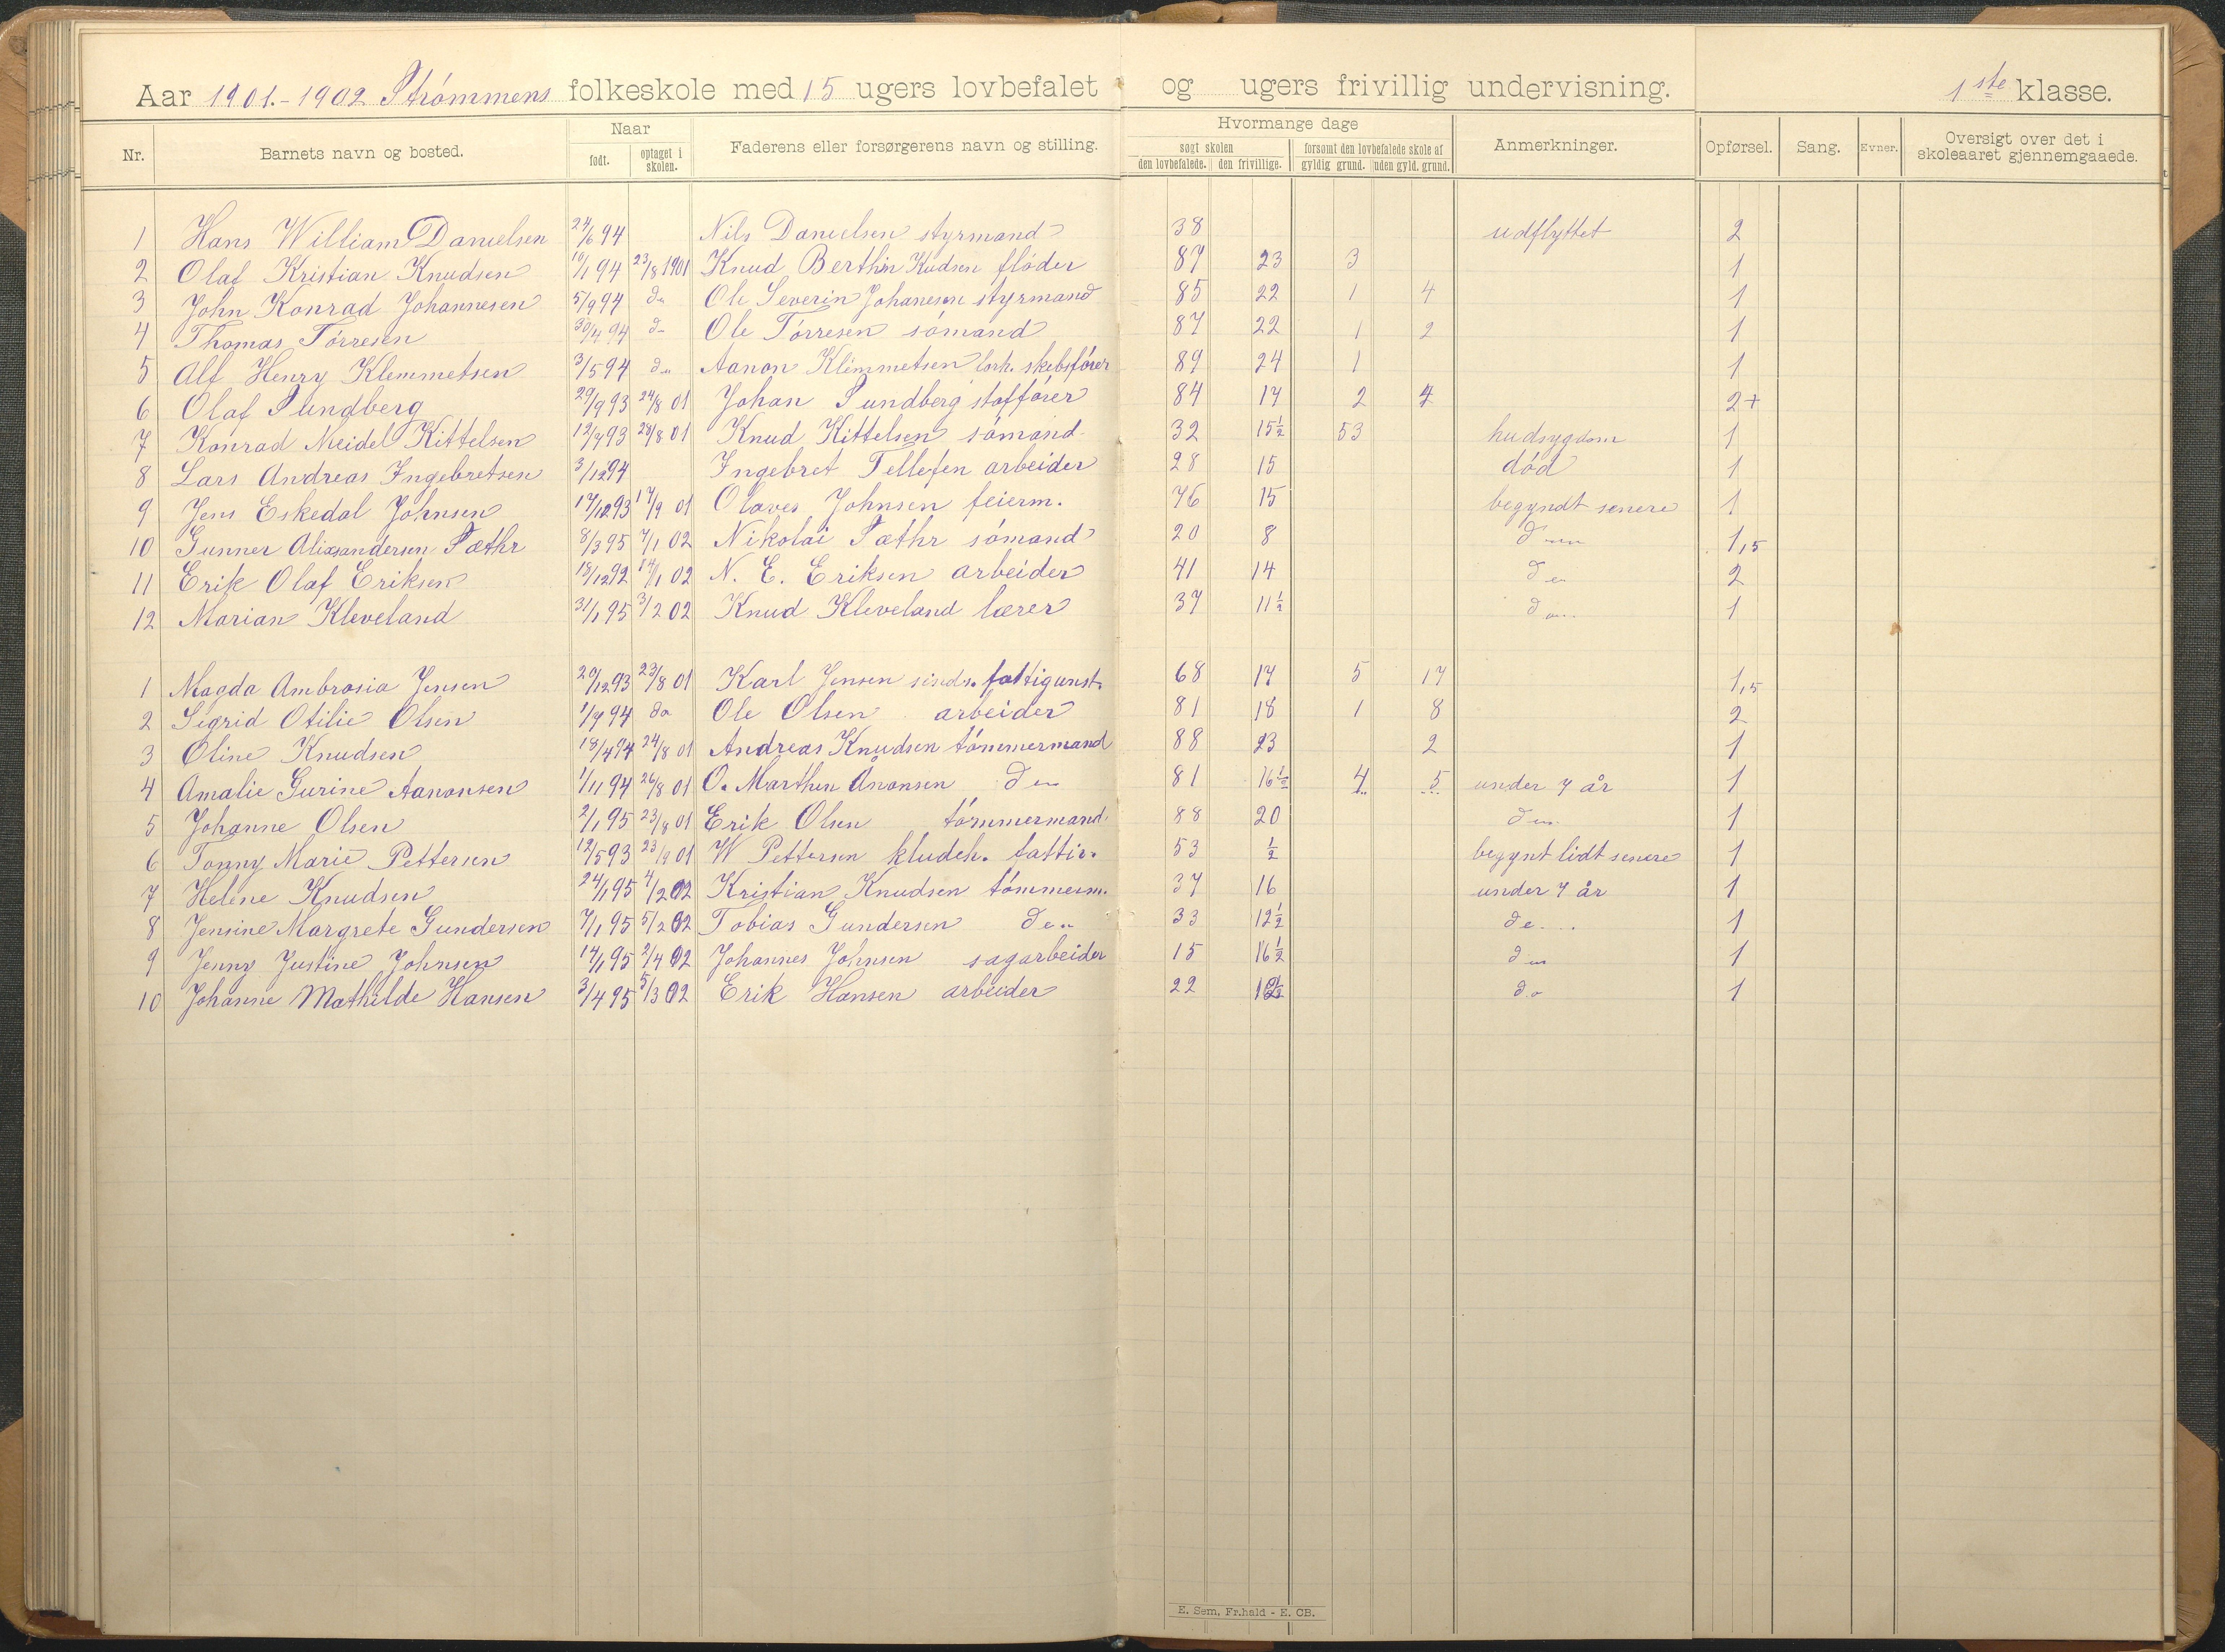 Aar 1901.-1902 Strømmens folkeskole med 15 ugers lovbefalet og ugers frivillig undervisning. 1ste klasse.
Nr. Barnets navn og bosted. Naar født. optaget i skolen. Faderens eller forsørgerens navn og stilling. Hvormange dage søgt skolen den lovbefalede. den frivillige. forsømt den lovbefalede skole af gyldig grund. uden gyld. grund. Anmerkninger. Opførsel. Sang. Evner. Oversigt over det i skoleaaret gjennemgaaede.
1 Hans William Danielsen 24/6 94 Nils Danielsen styrmand 38 udflyttet 2
2 Olaf Kristian Knudsen 10/1 94 23/8 1901 Knud Berthin Kudsen fløder 87 23 3 1
3 John Konrad Johannesen 5/9 94 do Ole Severin Johanesen styrmand 85 22 1 4 1
4 Thomas Tørresen 30/4 94 do Ole Tørresen sømand 87 22 1 2 1
5 Alf Henry Klemmetsen 3/5 94 do Aanon Klemmetsen skebsfører 89 24 1 1
6 Olaf Sundberg 29/9 93 24/8 01 Johan Sundberg stoffører 84 17 2 4 2+
7 Konrad Meidel Kittelsen 12/8 93 28/8 01 Knud Kittelsen sømand 32 15½ 53 hudsygdom 1
8 Lars Andreas Ingebretsen 3/12 94 Ingebret Tellefsen arbeider 28 15 død 1
9 Jens Eskedal Johnsen 17/12 93 17/9 01 Olaves Johnsen feierm. 76 15 begyndt senere 1
10 Gunner Alixsandersen Sæthr 8/3 95 7/1 02 Nikolai Sæthr sømand 20 8 do 1,5
11 Erik Olaf Eriksen 18/12 92 14/1 02 N. E. Eriksen arbeider 41 14 do 2
12 Marian Kleveland 31/1 95 3/2 02 Knud Kleveland lærer 37 11½ do 1
1 Magda Ambrosia Jensen 20/12 93 23/8 01 Karl Jensen sinds. fattigunst. 68 17 5 17 1,5
2 Sigrid Otilie Olsen 1/9 94 do Ole Olsen arbeider 81 18 1 8 2
3 Oline Knudsen 18/4 94 24/8 01 Andreas Knudsen tømmermand 88 23 2 1
4 Amalie Gurine Aanonsen 1/11 94 26/8 01 O. Marthin Anonsen do 81 16½ 4 5 under 7 år 1
5 Johanne Olsen 2/1 95 23/8 01 Erik Olsen tømmermand 88 20 do 1
6 Tonny Marie Pettersen 12/5 93 23/9 01 W Pettersen kludeh. fattig. 53 ½ begynt lidt senere 1
7 Helene Knudsen 24/1 95 4/2 02 Kristian Knudsen tømmerm. 37 16 under 7 år 1
8 Jensine Margrete Gundersen 7/1 95 5/2 02 Tobias Gundersen do 33 12½ do 1
9 Jenny Justine Johnsen 14/1 95 2/4 02 Johannes Johnsen sagarbeider 15 16½ do 1
10 Johanne Mathilde Hansen 3/4 95 5/3 02 Erik Hansen arbeider 22 do 1
E. Sem, Fr.hald - E. CB.